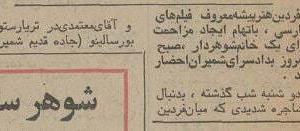 فردین هنرپیشه معروف فیلمهای
فارسی ، باتهام ایجاد مزاحمت
برای یک خانم شوهردار ،صبح
امروز بدادسرای شمیران احضار
شد .
دو شنبه شب گذشته ، بدنبال
مشاجره شدیدی که میان فردین
و آقای معتمدی در تریا رستو
بورسالینو (جاده قدیم شمیر
شوهر س